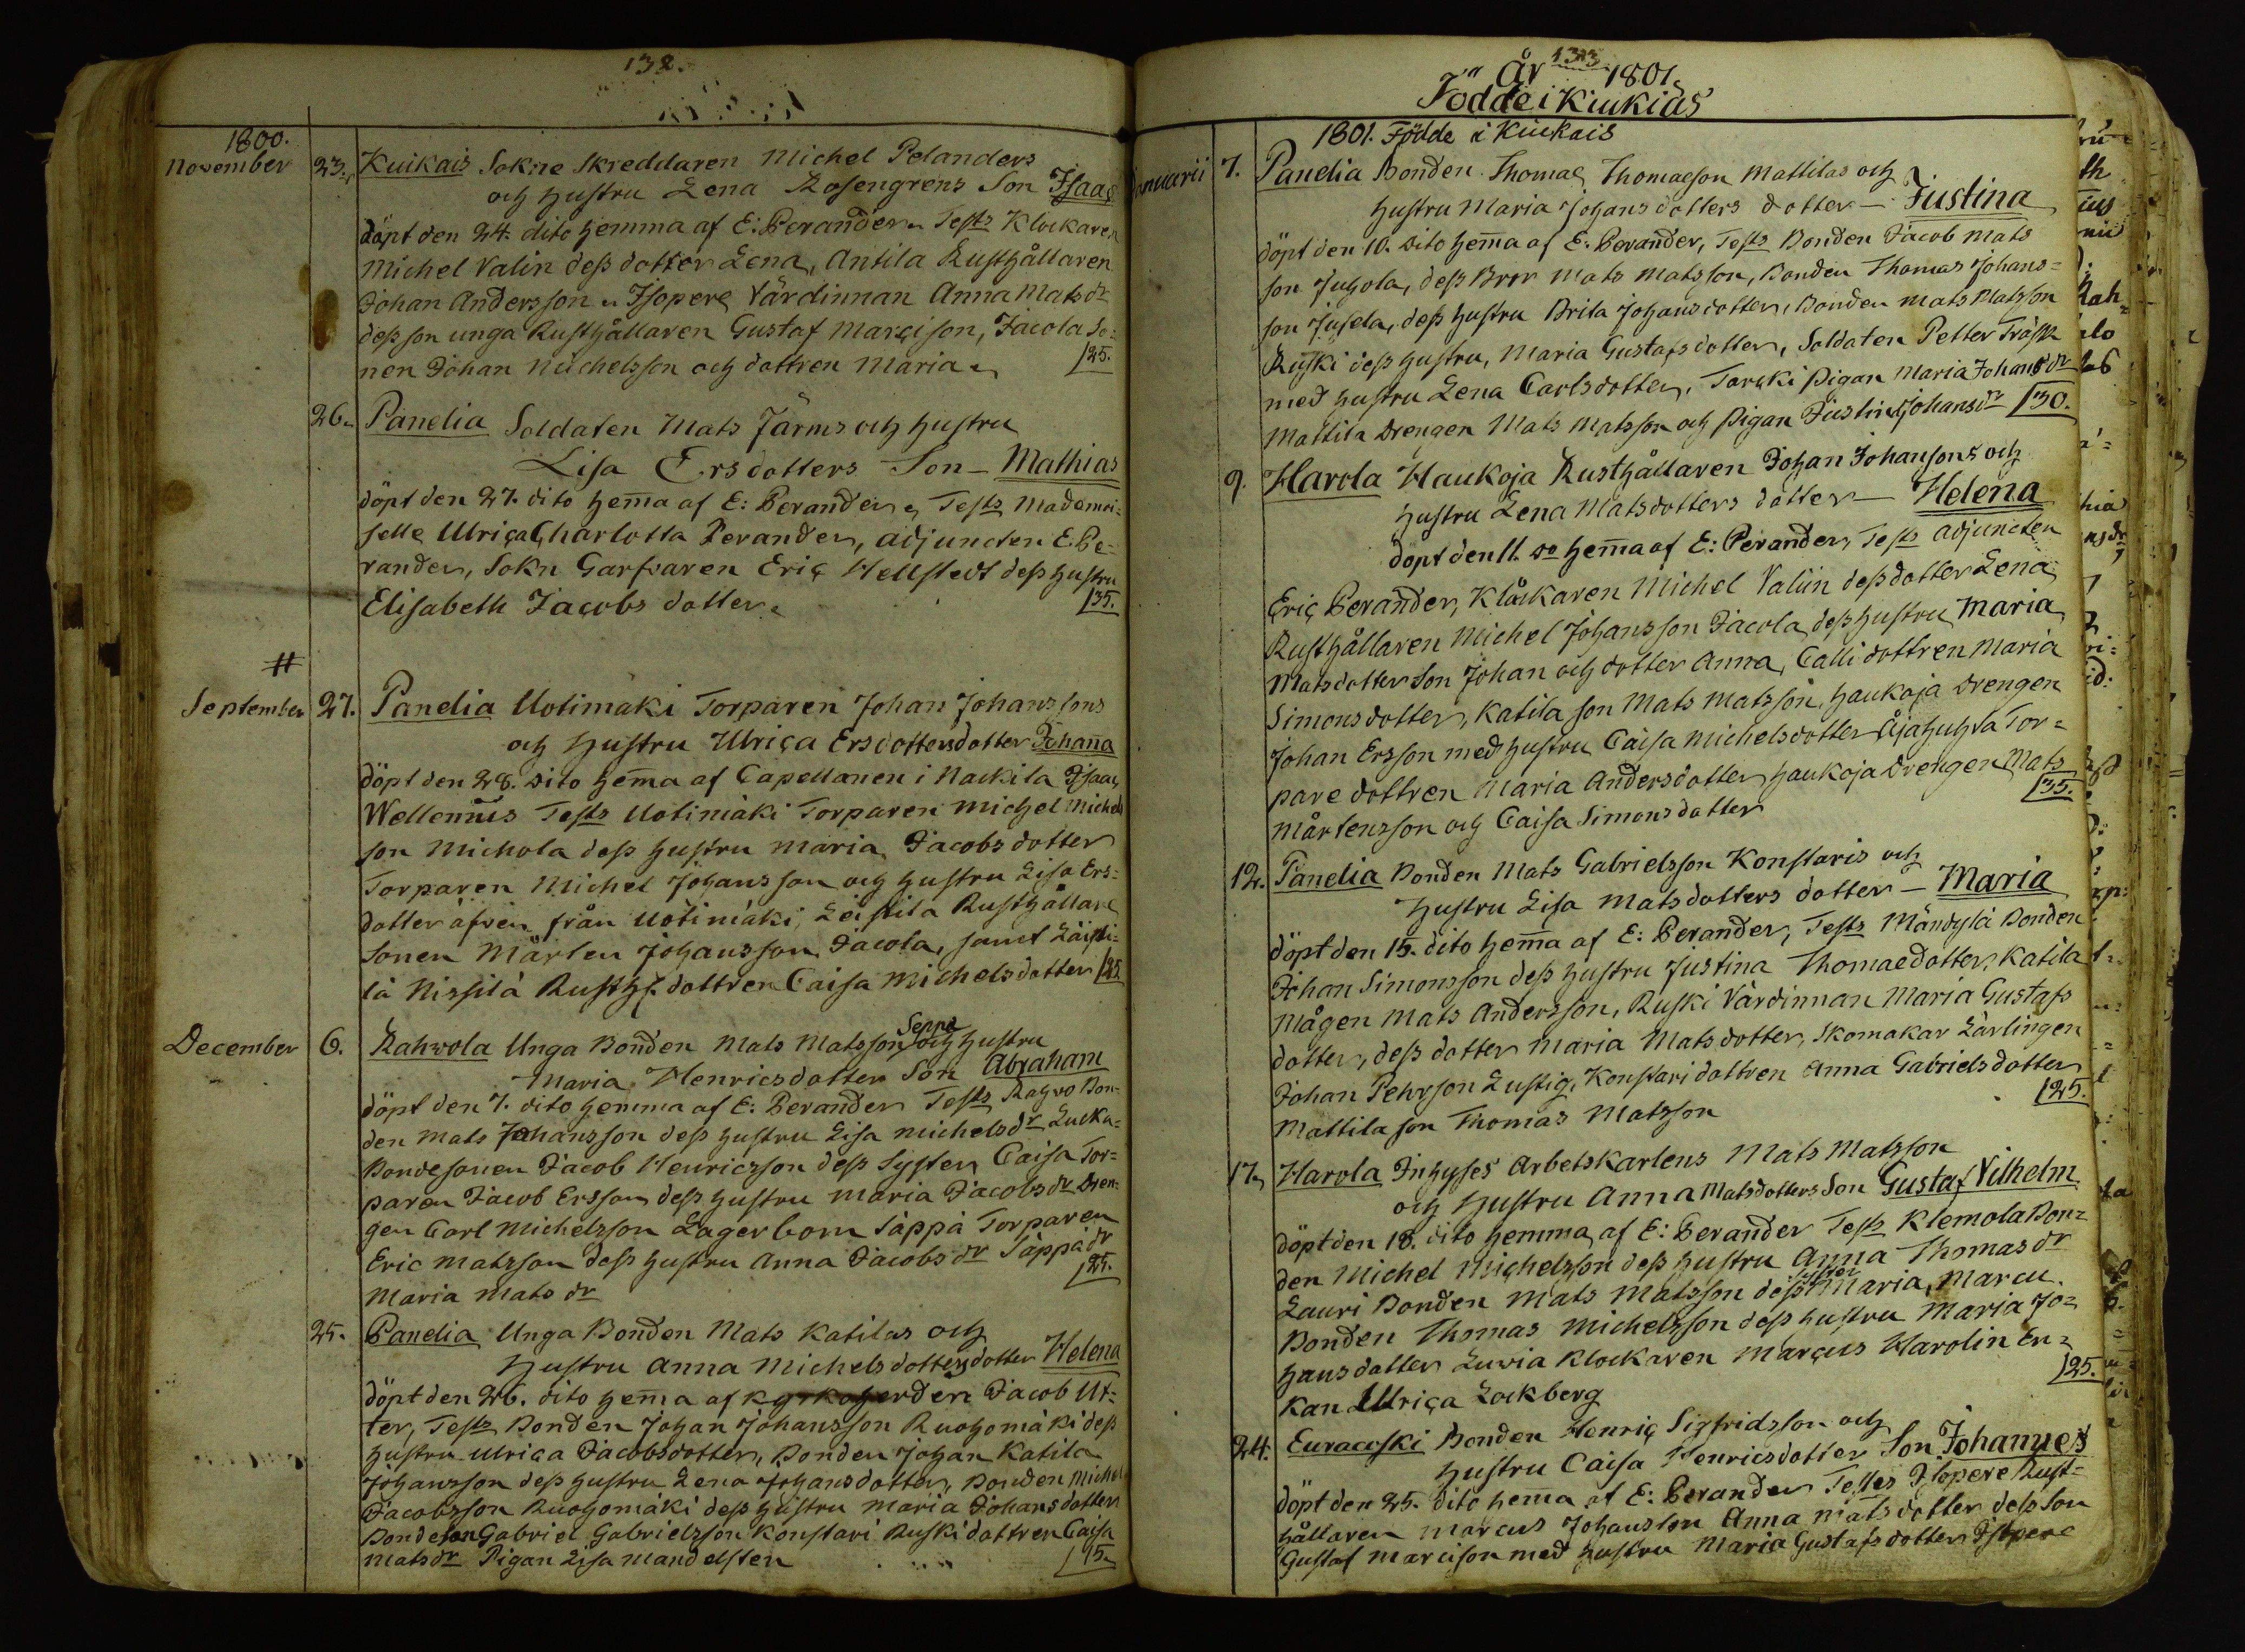 138.
1800.
November 23. Kuikais Sokne Skreddaren Michel Pelanders
och hustru Lena Rosengrens Son Isaac
döpt den 24. dito hemma af E: Perander. Tests Klockaren
Michel Valin dess dotter Lena, Antila Rusthållaren
Johan Andersson Isopere Värdinnan Anna Mats dr
dess son unga Rusthållaren Gustaf Marcison, Jacola So=
nen Johan Michelsson och dottren Maria 25.
26. Panelia Soldaten Mats Järms och hustru
Lisa Ersdotters Son - Mathias
döpt den 27. dito hema af E: Perander, Tests Mademoi=
selle Ulrica Charlotta Perander, adjuncten E. Pe=
rander, Sokn Garfvaren Eric Hellstedt dess hustru
Elisabeth Jacobs dotter. 35.
#
September 27. Panelia Uotimäki Torparen Johan Johanssons
och hustru Ulrica Ersdotters dotter Johana
döpt den 28. dito hema af Capellanen i Nackila Isaac
Wellenius Tests Uotimäki Torparen Michel Michels
son Michola dess hustru Maria Jacobs dotter
Torparen Michel Johansson och hustru Lisa Ers=
dotter äfven från Uotimäki, Leistila Rusthållare
Sonen Mårten Johansson Jacola, samt Läipi=
lä Nissilä Rusth. dottren Caisa Michelsdotter 25.
December 6. Rahwola Unga Bonden Mats Matsson Seppä och hustru
Maria Henricsdotter Son Abraham
döpt den 7. dito hemma af E: Perander Tests Rahvo Bon=
den Mats Johansson dess hustru Lisa Michelsdr Lucka=
Bondesonen Jacob Henricsson dess Syster Caisa Tor=
paren Jacob Ersson dess hustru Maria Jacobs dr Dren=
gen Carl Michelsson Lagerbom Säppä Torparen
Eric Matsson dess hustru Anna Jacobs dr Säppä dr
Maria Mats dr 25.
25. Panelia Unga Bonden Mats Katilas och
hustru Anna Michelsdotters dotter Helena
döpt den 26. dito hema af Kyrkoherden Jacob Ut=
ter, Tests Bonden Johan Johansson Ruohomäki dess
hustru Ulrica Jacobsdotter, Bonden Johan Katila
Johansson dess hustru Lena Johansdotter, Bonden Michel
Jacobsson Ruohomäki dess hustru Maria Johansdotter
Bondeson Gabriel Gabrielsson Konstari Ruski dottren Caisa
Matsdr Pigan Lisa Mandelsten 15.
133
År 1801.
Födde i Kiukias
1801. Födde i Kiukais
Januarii 7. Panelia Bonden Thomas Thomaeson Mattilas och
hustru Maria Johansdotters dotter - Justina
döpt den 10. dito hema af E: Perander, Tests Bonden Jacob Mats
son Juhola, dess Bror Mats Matsson, Bonden Thomas Johans=
son Jusela, dess hustru Brita Johansdotter, Bonden Mats Matsson
Ruski dess hustru, Maria Gustafsdotter, Soldaten Petter Träsk
med hustru Lena Carlsdotter, Torcki Pigan Maria Johans dr
Mattila Drengen Mats Matsson och Pigan Justina Johans dr 30.
9. Harola Haukoja Rusthållaren Johan Johansons och
hustru Lena Matsdotters dotter - Helena
döpt den 11. do hema af E: Perander, Tests adjuncten
Eric Perander, Klåckaren Michel Valiin dess dotter Lena
Rusthållaren Michel Johansson Jacola, dess hustru Maria
Matsdotter Son Johan och dotter Anna, Calli dottren Maria
Simonsdotter, Katila son Mats Matsson, Haukoja Drengen
Johan Ersson med hustru Caisa Michelsdotter Äjahuhta Tor=
pare dottren Maria Andersdotter, Haukoja Drengen Mats
Mårtensson och Caisa Simonsdotter 35.
12. Panelia Bonden Mats Gabrielsson Konstaris och
hustru Lisa Matsdotters dotter - Maria
döpt den 15. dito hema af E: Perander, Tests Mändylä Bonden
Johan Simonsson dess hustru Justina Thomaedotter, Katila
Mågen Mats Andersson, Ruski Värdinnan Maria Gustafs
dotter, dess dotter Maria Matsdotter, Skomakar Lärlingen
Johan Pehrson Lustig, Konstari dottren Anna Gabrielsdotter
Mattila son Thomas Matsson 25.
17. Harola Inhyses Arbetskarlens Mats Matsson
och hustru Anna Matsdotters Son Gustaf Vilhelm
döpt den 18. dito hemma af E: Perander Tests Klemola Bon=
den Michel Michelsson dess hustru Anna Thomas dr
Lauri Bonden Mats Matsson dess syster Maria, Marcu
Bonden Thomas Michelsson dess hustru Maria Jo=
hansdotter Luvia Klockaren Marcus Harolin En=
kan Ulrica Lockberg 25.
24. Euracoski Bonden Henric Sigfridsson och
hustru Caisa Henricsdotter Son Johannes
döpt den 25. dito hema af E: Perander Testes Isopere Rust=
hållaren Marcus Johansson Anna Matsdotter dess Son
Gustaf Marcison med hustru Maria Gustafsdotter Isopere